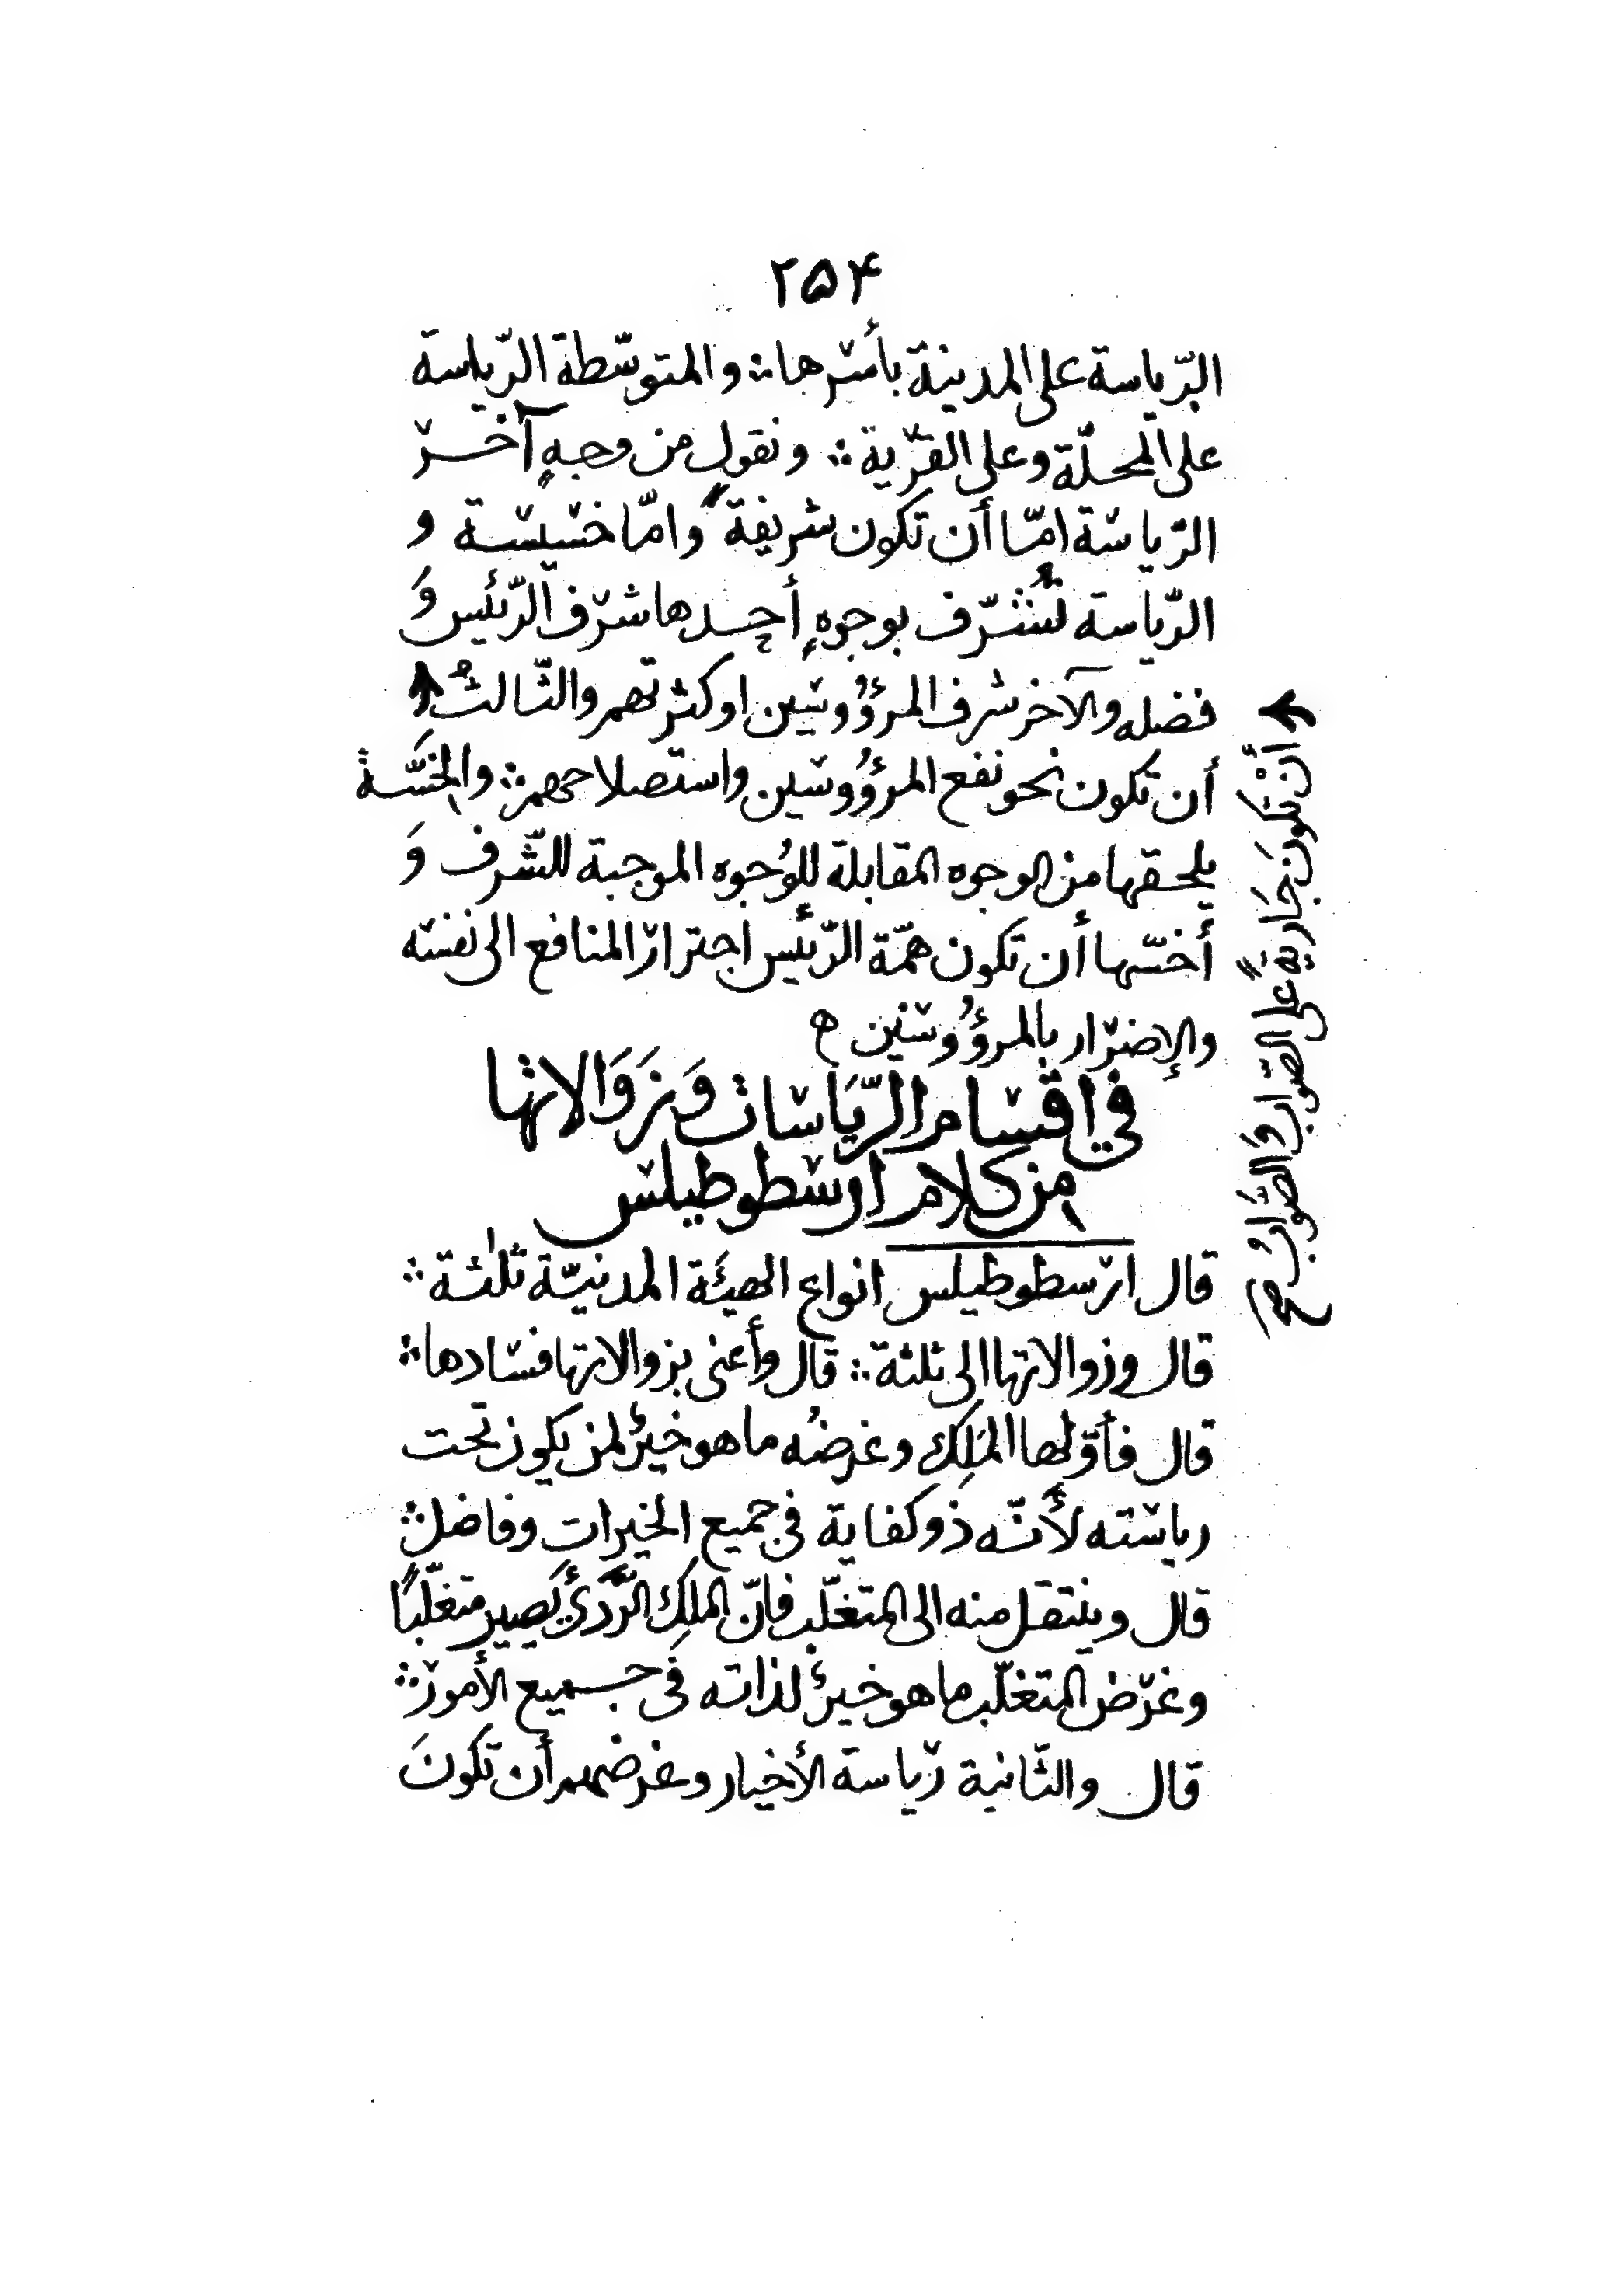 ٢٥۴
الرّياسة على المدينة بأسرها ∴ والمتوسّطة الرّياسة
على المحلّة وعلى القرية ∴ ونقول من وجهٍ آخر
الرّياسة امّا أن تكون شريفةً وامّا خسيسة و
الرّياسة تُشرّف بوجوهٍ أحدها شرف الرّئيس وَ
فضله والآخر شرف المرؤُوسين او كثرتهم والثّالثُ
أن تكون نحو نفع المرؤُوسين واستصلاحهم ∴ والخِسَّة
يلحقها من الوجوه المقابلة للوُجوه الموجبة للشّرف وَ
أخسّها أن تكون همّة الرّئيس اجترار المنافع الى نفسه
والإضرار بالمرؤُوسين ه
في اقسام الرّيَاسات وَزَوَالاتها
من كلام ارسطوطيلس
قال ارسطوطيلس انواع الهيئَة المدنيّة ثلٰثة ∴
قال وزوالاتها الى ثلثة ∴ قال وأعنى بزوالاتها فسادها ∴
قال فأوّلها الملِك وغرضُه ما هو خيرٌ لمن يكون تحت
رياسته لأنّه ذو كفاية فى جميع الخيرات وفاضل ∴
قال وينتقل منه الى المتغلّب فانّ الملِك الرَّدىَٔ يَصير متغلّبًا
وغرض المتغلّب ما هو خيرٌ لذاته فى جميع الأمور ∴
قال والثّانية رياسة الأخيار وغرضهم أن تكونَ
أنْ تكونَ جَاريةً على الصّواب وَالصَّوابُ صح